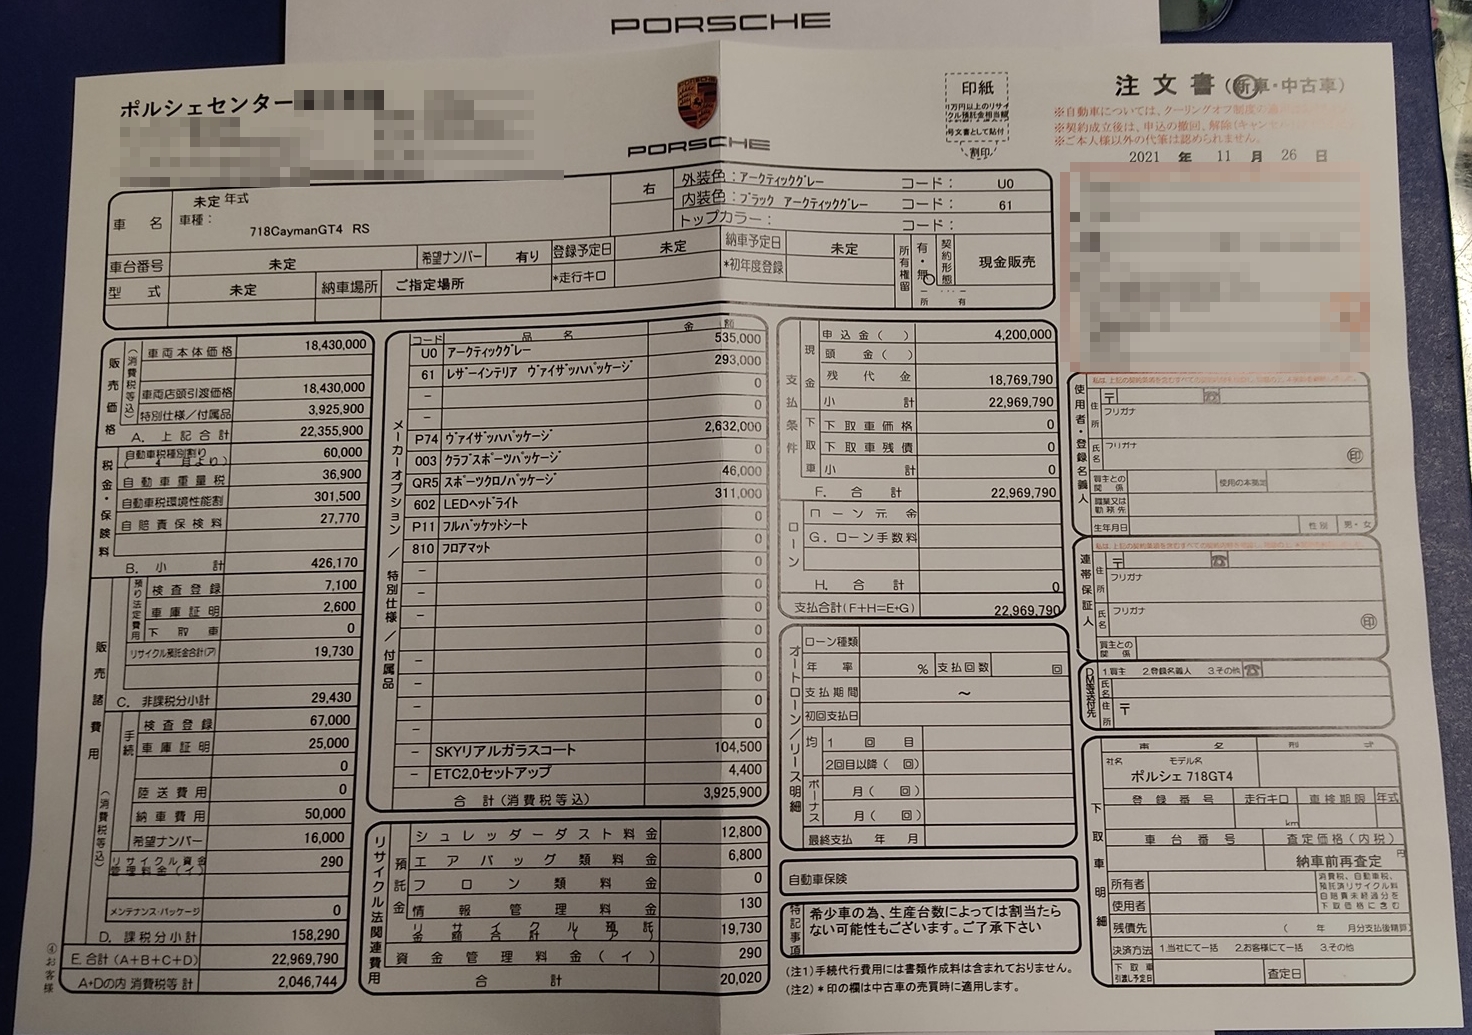 PORSCHE
ポルシェセンター
PORSCHE
PORSCHE
印紙
割印
注文書(新車・中古車)
※自動車については、クーリングオフ制度の
※契約成立後は、申込の撤回、解除(キャンセル
※ご本人様以外の代筆は認められません。
2021 年 11 月 26 日
車名
未定 年式
車種:
718CaymanGT4 RS
右
外装色:アークティックグレー コード: U0
内装色:ブラック アークティックグレー コード: 61
トップカラー: コード:
車台番号 未定
希望ナンバー 有り
登録予定日 未定
納車予定日 未定
*走行キロ
*初年度登録
所有権留 有・無
契約形態 現金販売
所有
型式 未定
納車場所 ご指定場所
販売価格
(消費税等込)
車両本体価格 18,430,000
車両店頭引渡価格 18,430,000
特別仕様/付属品 3,925,900
A. 上記合計 22,355,900
税金・保険料
自動車税種別割り
( 4 月より) 60,000
自動車重量税 36,900
自動車税環境性能割 301,500
自賠責保険料 27,770
B. 小計 426,170
販売諸費用
預り法定費用
検査登録 7,100
車庫証明 2,600
下取車 0
リサイクル預託金合計(ア) 19,730
C. 非課税分小計 29,430
手続
(消費税等込)
検査登録 67,000
車庫証明 25,000
0
陸送費用 0
納車費用 50,000
希望ナンバー 16,000
リサイクル資金
管理料金(イ) 290
メンテナンス・パッケージ 0
D. 課税分小計 158,290
E.合計(A+B+C+D) 22,969,790
A+Dの内 消費税等 計 2,046,744
④お客様
メーカーオプション/特別仕様/付属品
コード 品名 金額
U0 アークティックグレー 535,000
61 レザーインテリア ヴァイザッハパッケージ 293,000
0
- 0
- 
P74 ヴァイザッハパッケージ 2,632,000
003 クラブスポーツパッケージ 0
QR5 スポーツクロノパッケージ 46,000
602 LEDヘッドライト 311,000
P11 フルバケットシート 0
810 フロアマット 0
- 0
- 0
- 0
0
0
- 0
- 0
- 0
- 0
- SKYリアルガラスコート 104,500
- ETC2,0セットアップ 4,400
合計(消費税等込) 3,925,900
リサイクル法関連費用
預託金
シュレッダーダスト料金 12,800
エアバッグ類料金 6,800
フロン類料金 0
情報管理料金 130
リサイクル預託
金額合計(ア) 19,730
資金管理料金(イ) 290
合計 20,020
支払条件
現金
申込金( ) 4,200,000
頭金( )
残代金 18,769,790
小計 22,969,790
下取車
下取車価格 0
下取車残債 0
小計 0
F. 合計 22,969,790
ローン
ローン元金
G. ローン手数料
H. 合計 0
支払合計(F+H=E+G) 22,969,790
オートローン/リース明細
ローン種類
年率 % 支払回数 回
支払期間 ~
初回支払日
均 1 回目
2回目以降( 回)
ボーナス
月( 回)
月( 回)
最終支払 年 月
自動車保険
特記事項
希少車の為、生産台数によっては割当たら
ない可能性もございます。ご了承下さい
(注1)手続代行費用には書類作成料は含まれておりません。
(注2)*印の欄は中古車の売買時に適用します。
使用者・登録名義人
住所
〒
フリガナ
氏名
フリガナ
印
買主との
関係
使用の本拠
職業又は
勤務先
生年月日
性別 男・女
連帯保証人
住所
〒
フリガナ
氏名
フリガナ
印
買主との
関係
DM等送付先
1.買主 2.登録名義人 3.その他
氏名
住所
〒
下取車明細
車名 型式
社名 モデル名
ポルシェ 718GT4
登録番号 走行キロ 車検期限 年式
km
車台番号 査定価格(内税)
納車前再査定 円
所有者
使用者
消費税、自動車税、
預託済リサイクル料
自賠責未経過分を
下取価格に含む
残債先 ( 年 月分支払後精算)
決済方法 1.当社にて一括 2.お客様にて一括 3.その他
下取車
引渡し予定日
査定日